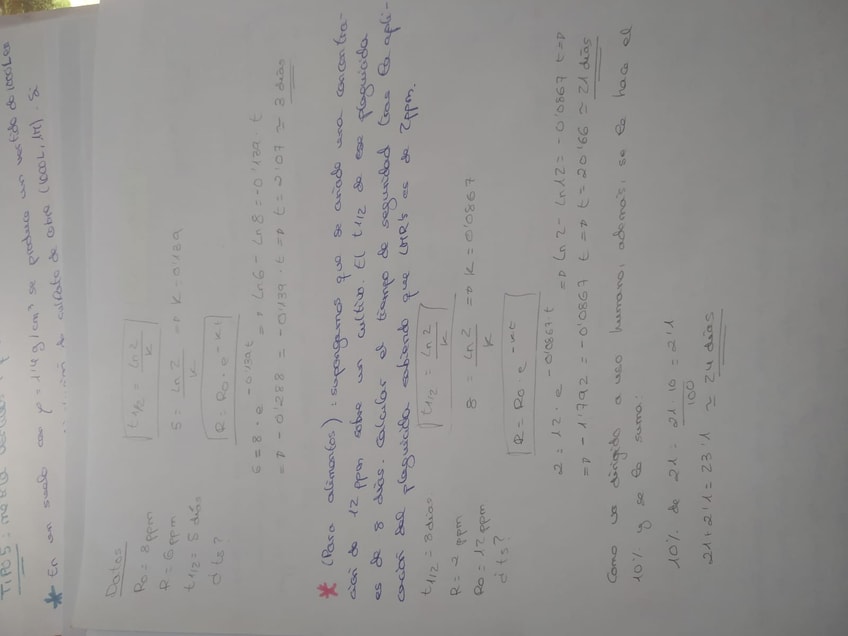 TIPO 5: mezcla
* En un suelo con ρ = 1'4 g/cm³ se produce un vertido de 1000L de
de sulfato de cobre (1000L, 1M). Si
Datos
R₀ = 8 ppm
R = 6 ppm
t1/2 = 5 días
d ts?
t1/2 = Ln2/K
5 = Ln2/K =D K = 0'139
R = R₀ · e^-Kt
6 = 8 · e^-0'139t =D Ln6 - Ln8 = -0'139 · t
=D -0'288 = -0'139 · t =D t = 2'07 ≈ 3 días
* (Para alimentos): supongamos que se añade una concentra-
ción de 12 ppm sobre un cultivo. El t1/2 de ese plaguicida
es de 8 días. Calcular el tiempo de seguridad tras la apli-
cación del plaguicida sabiendo que LMR's es de 2ppm.
t1/2 = 8 días
R = 2 ppm
R₀ = 12 ppm
d ts?
t1/2 = Ln2/K
8 = Ln2/K =D K = 0'0867
R = R₀ · e^-Kt
2 = 12 · e^-0'0867·t =D Ln2 - Ln12 = -0'0867 t =D
=D -1'792 = -0'0867 t =D t = 20'66 ≈ 21 días
Como va dirigido a uso humano, además, se le hace el
10% y se le suma:
10% de 21 = 21·10/100 = 2'1
21 + 2'1 = 23'1 ≈ 24 días